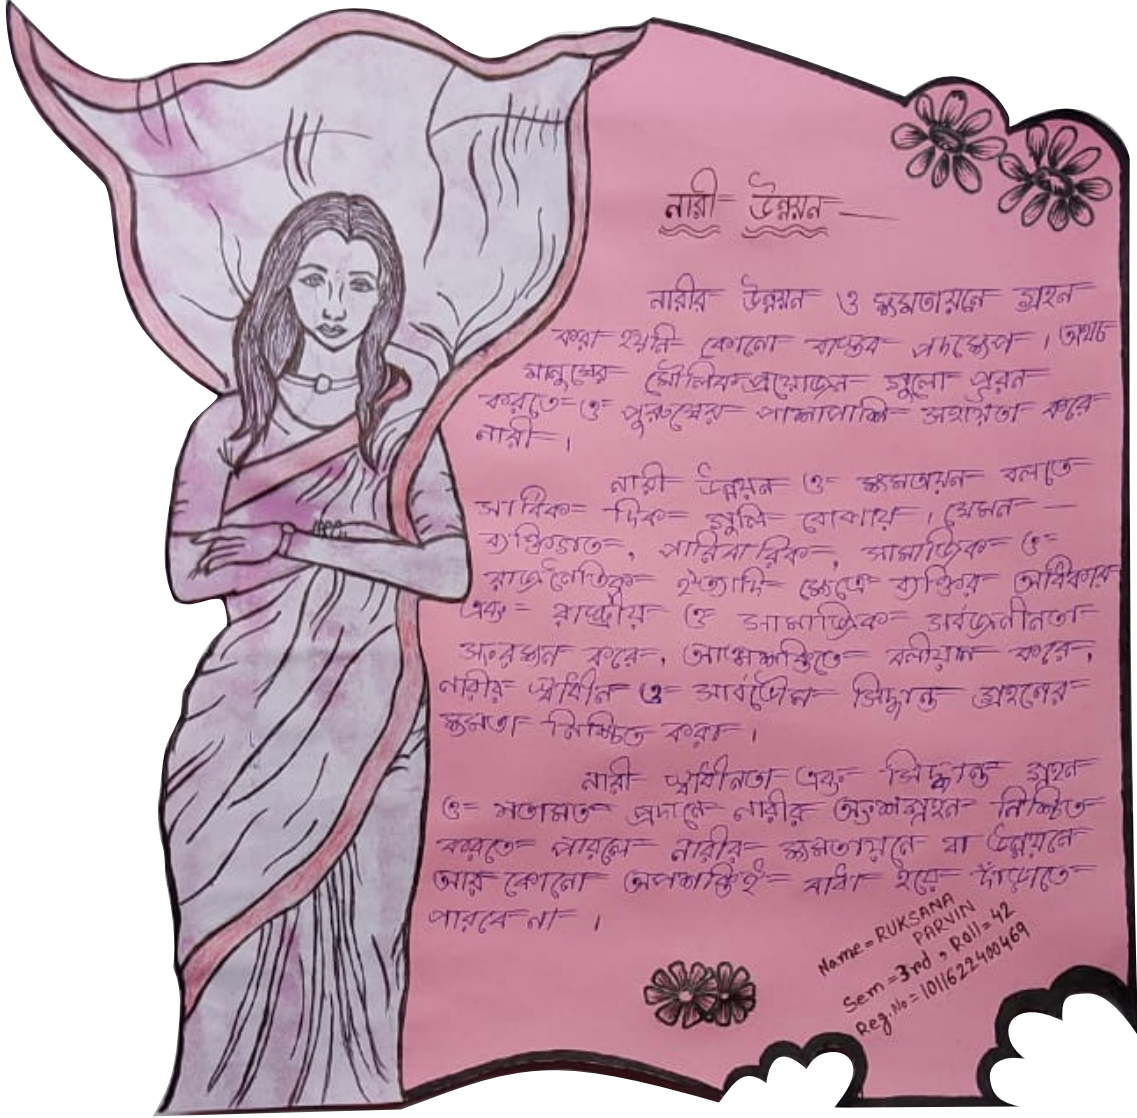 নারী উন্নয়ন
নারীর উন্নয়ন ও ক্ষমতায়নে গ্রহন
করা হয়নি কোনো বাস্তব পদক্ষেপ । অথচ
মানুষের মৌলিক প্রয়োজন গুলো পূরন
করতে ও পুরুষের পাশাপাশি সহায়তা করে
নারী ।
নারী উন্নয়ন ও ক্ষমতায়ন বলতে
সার্বিক দিক গুলি বোঝায় । যেমন —
ব্যক্তিগত, পারিবারিক, সামাজিক ও
রাজনৈতিক ইত্যাদি ক্ষেত্রে ব্যক্তির অধিকার
এবং রাষ্ট্রীয় ও সামাজিক সর্বজনীনতা
সংরক্ষন করে, আত্মশক্তিতে বলীয়ান করে,
নারীর স্বাধীন ও সার্বভৌম সিদ্ধান্ত গ্রহনের
ক্ষমতা নিশ্চিত করা ।
নারী স্বাধীনতা এবং সিদ্ধান্ত গ্রহন
ও মতামত প্রদানে নারীর অংশগ্রহন নিশ্চিত
করতে পারলে নারীর ক্ষমতায়নে বা উন্নয়নে
আর কোনো অপশক্তিই বাধা হয়ে দাঁড়াতে
পারবে না ।
Name = RUKSANA
PARVIN
Sem = 3rd, Roll = 42
Reg. No = 1011622400469